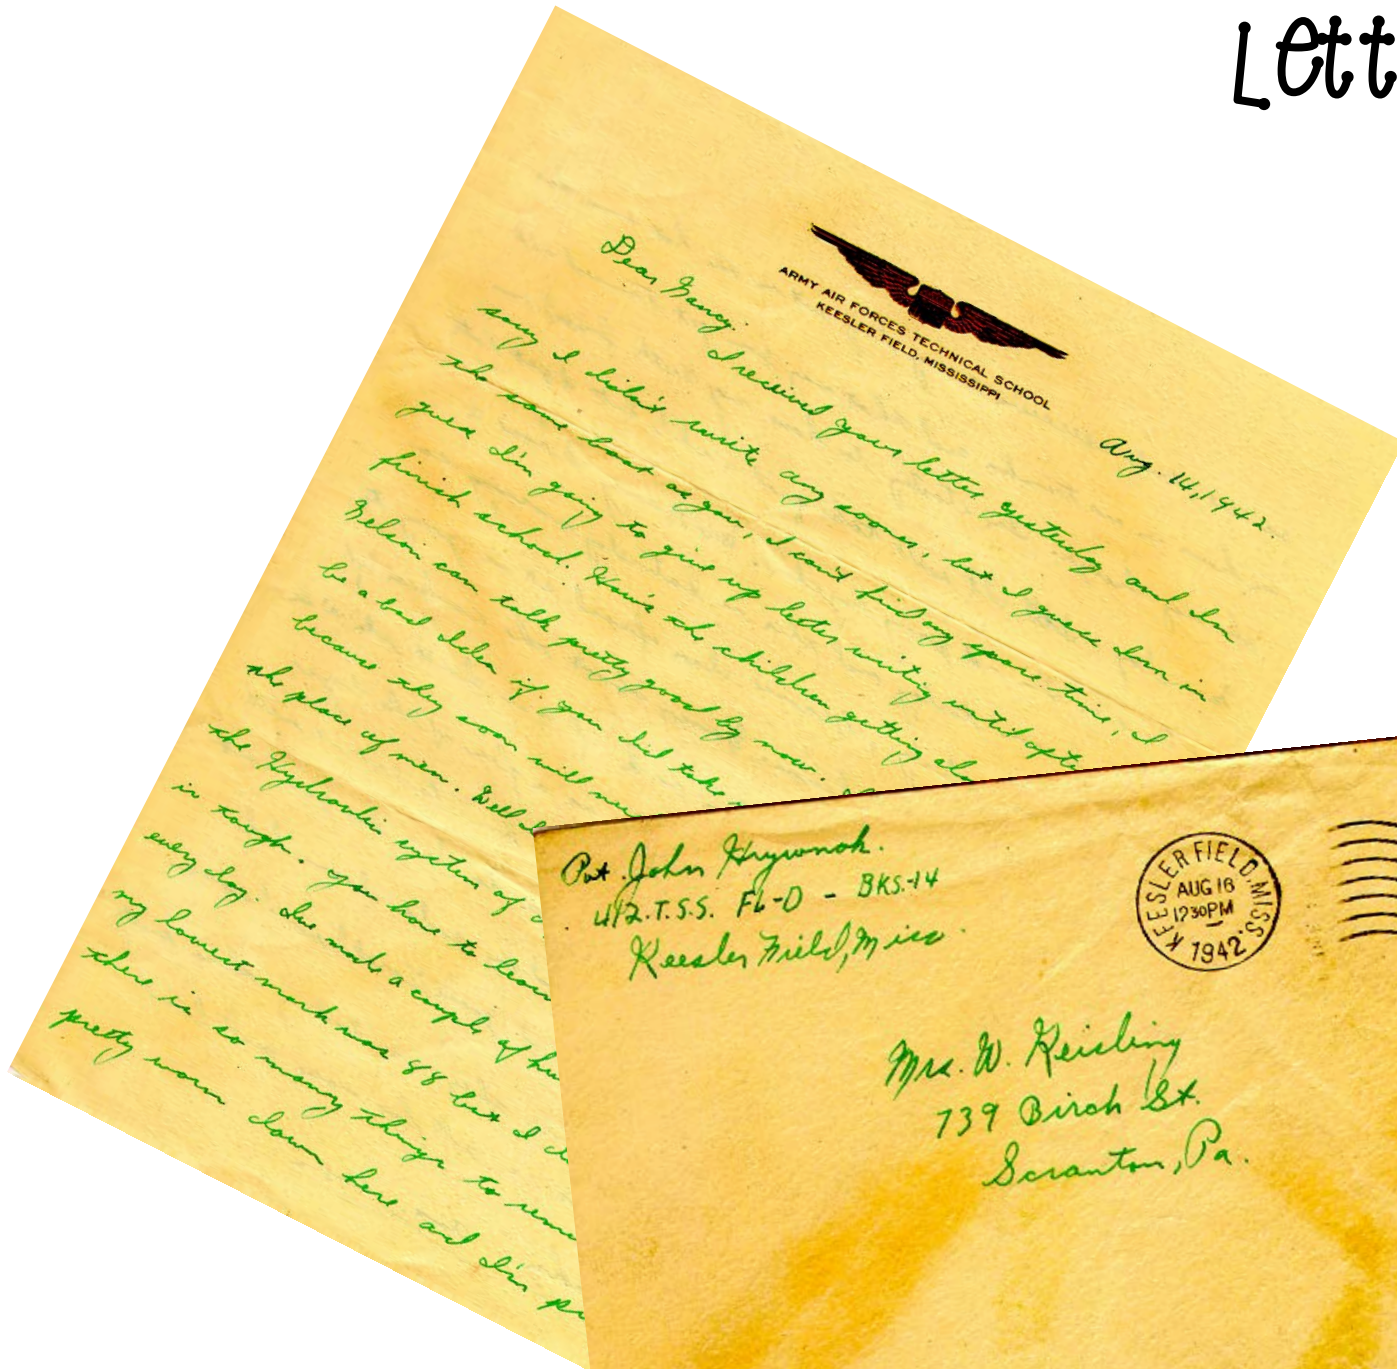 Lett
ARMY AIR FORCES TECHNICAL SCHOOL
KEESLER FIELD, MISSISSIPPI
Aug. 14, 1942.
Dear Nancy.
I received your letter yesterday and I'm
sorry I didn't write any sooner, but I guess I'm in
the same boat as you, I can't find any spare time, I
guess I'm going to give up letter writing until after
finish school. How's the children getting alo
Nelson can talk pretty good by now.
be a bad idea if you did take
because they soon will
the place of men. Well I
the Hydraulic system of
in tough. You have to lear
every day. I've made a couple of hu
my lowest mark was 88 but I
there is so many things to reme
pretty worn down here and I'm
Pvt. John Hrywnak.
412.T.S.S. FL-D - BKS.-14
Keesler Field, Miss.
KEESLER FIELD, MISS.
AUG 16
1230PM
1942
Mrs. W. Keisling
739 Birch St.
Scranton, Pa.